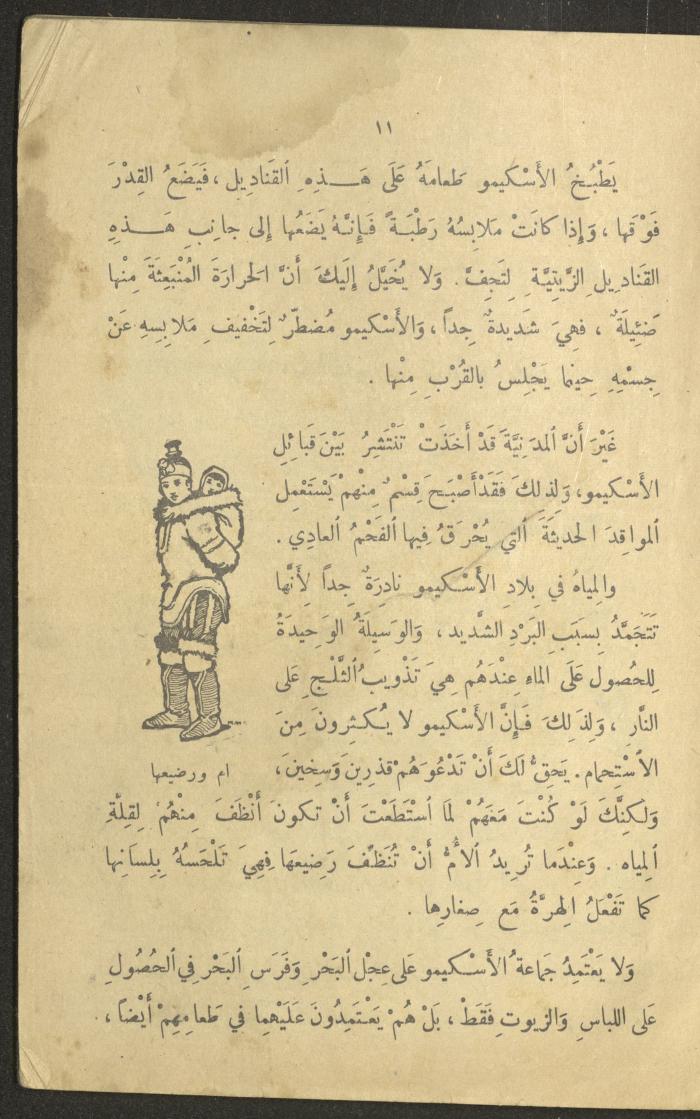 ١١
يَطْبُخُ الأَسْكيمو طَعامَهُ عَلَى هَـــذِهِ ٱلقَناديل ، فَيَضَعُ القِدْرَ
فَوْقَها ، وَإذا كانَتْ مَلابِسُهُ رَطْبَةً فَإِنَّهُ يَضَعُها إلى جانِبِ هَـــذِهِ
القَناديلِ الزَّيتِيَّةِ لِتَجِفَّ . وَلا يُخَيَّلُ إِلَيكَ أَنَّ الحَرارَةَ المُنْبَعِثَةَ مِنْها
ضَئيلَةٌ ، فَهِيَ شَديدةٌ جِداً ، وَالأَسْكيمو مُضطَرٌّ لِتَخْفيفِ مَلابِسِهِ عَنْ
جِسْمِهِ حِينما يَجْلِسُ بالقُرْبِ مِنْها .
غَيْرَ أَنَّ ٱلمدَنِيَّةَ قَدْ أَخَذَتْ تَنْتَشِرُ بَيْنَ قَبائِلِ
الأَسْكيمو، وَلِذلِكَ فَقَدْ أَصْبَحَ قِسْمٌ مِنْهمْ يَسْتَعْمِل
ٱلمواقِدَ الحديثَةَ ٱلتي يُحْرَقُ فيها ٱلفَحْمُ ٱلعادِي .
والمِياهُ في بِلادِ الأَسْكيمو نادِرَةٌ جِداً لِأَنَّها
تَتَجَمَّدُ بِسَبَبِ البَرْدِ الشَّديد ، وَالوَسيلَةُ الوَحِيدَةُ
لِلحُصُول عَلَى الماءِ عِنْدَهُم هِيَ تَذْويبُ ٱلثَّلْجِ عَلى
النَّارِ ، وَلِذَلِكَ فَإِنَّ الأَسْكيمو لا يُـكْـثِرونَ مِنَ
الاسْتِحمام . يَحِقُّ لَكَ أَنْ تَدْعُوَهُمْ قَذِرِينَ وَسِخينَ ،
ام ورضيعها
وَلـكِنَّكَ لَوْ كُنْتَ مَعَهُمْ لَمَا ٱسْتَطَعْتَ أَنْ تكونَ أَنْظَفَ مِنْهُمْ لِقِلَّةِ
ٱلمِياه . وَعِنْدَما تُرِيدُ ٱلأُمُّ أَنْ تُنَظِّفَ رَضِيعَها فِهِيَ تَلْحَسُهُ بِلِسَانِها
كما تَفْعَلُ الهِرَّةُ مَع صِغارِها .
وَلا يَعْتَمِدُ جَماعةُ الأَسْكيمو عَلى عِجْلِ ٱلبَحْرِ وَفَرَسِ ٱلبَحْرِ في ٱلحُصُولِ
عَلى اللباسِ وَالزيوتِ فَقَطْ ، بَلْ هُمْ يَعْتَمِدُونَ عَلَيْهِما في طَعامِهِمْ أَيْضاً ،